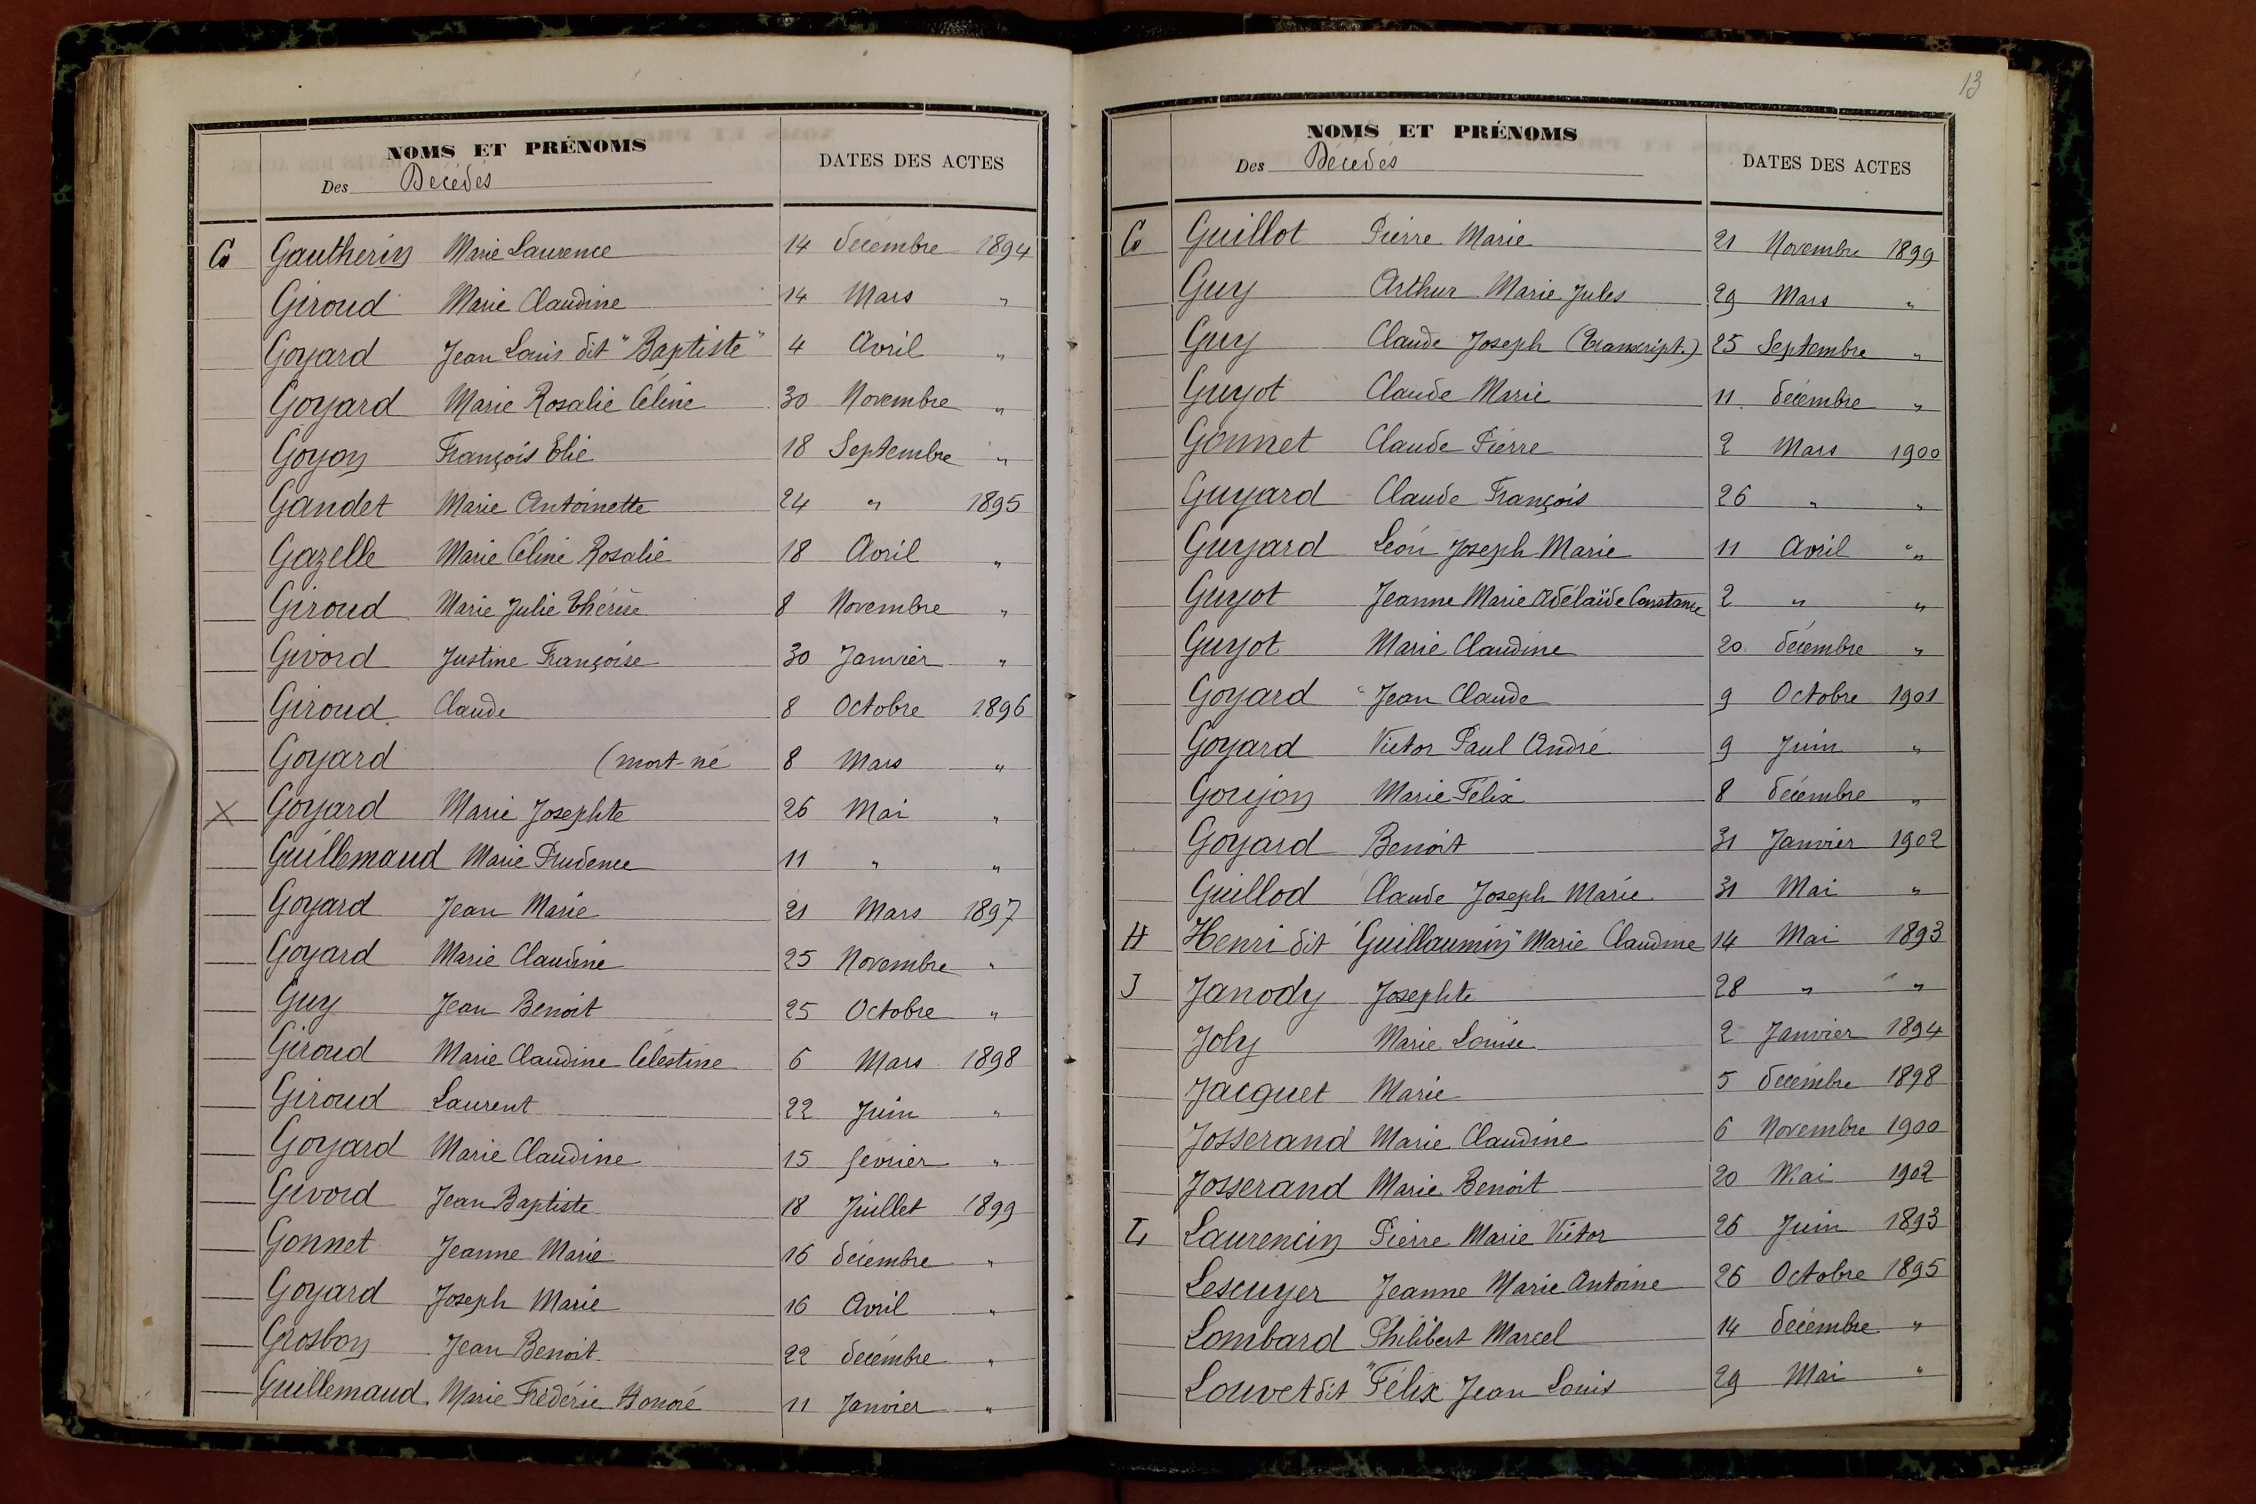 NOMS ET PRÉNOMS
Des Décédés
DATES DES ACTES
G Gautherin Marie Laurence 14 décembre 1894
Giroud Marie Claudine 14 Mars "
Goyard Jean Louis dit "Baptiste" 4 Avril "
Goyard Marie Rosalie Céline 30 Novembre "
Goyon François Elie 18 Septembre "
Gandet Marie Antoinette 24 " 1895
Gazelle Marie Céline Rosalie 18 Avril "
Giroud Marie Julie Thérèse 8 Novembre "
Givord Justine Françoise 30 Janvier "
Giroud Claude 8 Octobre 1896
Goyard (mort-né 8 Mars "
X Goyard Marie Josephte 26 Mai "
Guillemaud Marie Prudence 11 " "
Goyard Jean Marie 21 Mars 1897
Goyard Marie Claudine 25 Novembre "
Guy Jean Benoit 25 Octobre "
Giroud Marie Claudine Célestine 6 Mars 1898
Giroud Laurent 22 Juin "
Goyard Marie Claudine 15 février "
Givord Jean Baptiste 18 Juillet 1899
Gonnet Jeanne Marie 16 décembre "
Goyard Joseph Marie 16 Avril "
Grosbon Jean Benoit 22 décembre "
Guillemaud Marie Frédéric Honoré 11 Janvier "
13
NOMS ET PRÉNOMS
Des Décédés
DATES DES ACTES
G Guillot Pierre Marie 21 Novembre 1899
Guy Arthur Marie Jules 29 Mars "
Guy Claude Joseph (Transcript.) 25 Septembre "
Guyot Claude Marie 11 décembre "
Gonnet Claude Pierre 2 Mars 1900
Guyard Claude François 26 " "
Guyard Léon Joseph Marie 11 Avril "
Guyot Jeanne Marie Adélaïde Constance 2 " "
Guyot Marie Claudine 20 décembre "
Goyard Jean Claude 9 Octobre 1901
Goyard Victor Paul André 9 Juin "
Goujon Marie Félix 8 décembre "
Goyard Benoit 31 Janvier 1902
Guillod Claude Joseph Marie 31 Mai "
H Henri dit "Guillaumin" Marie Claudine 14 Mai 1893
J Janody Josephte 28 " "
Joly Marie Louise 2 Janvier 1894
Jacquet Marie 5 décembre 1898
Josserand Marie Claudine 6 Novembre 1900
Josserand Marie Benoit 20 Mai 1902
L Laurencin Pierre Marie Victor 26 Juin 1893
Lescuyer Jeanne Marie Antoine 26 Octobre 1895
Lombard Philibert Marcel 14 décembre "
Louvet dit "Félix Jean Louis 29 Mai "